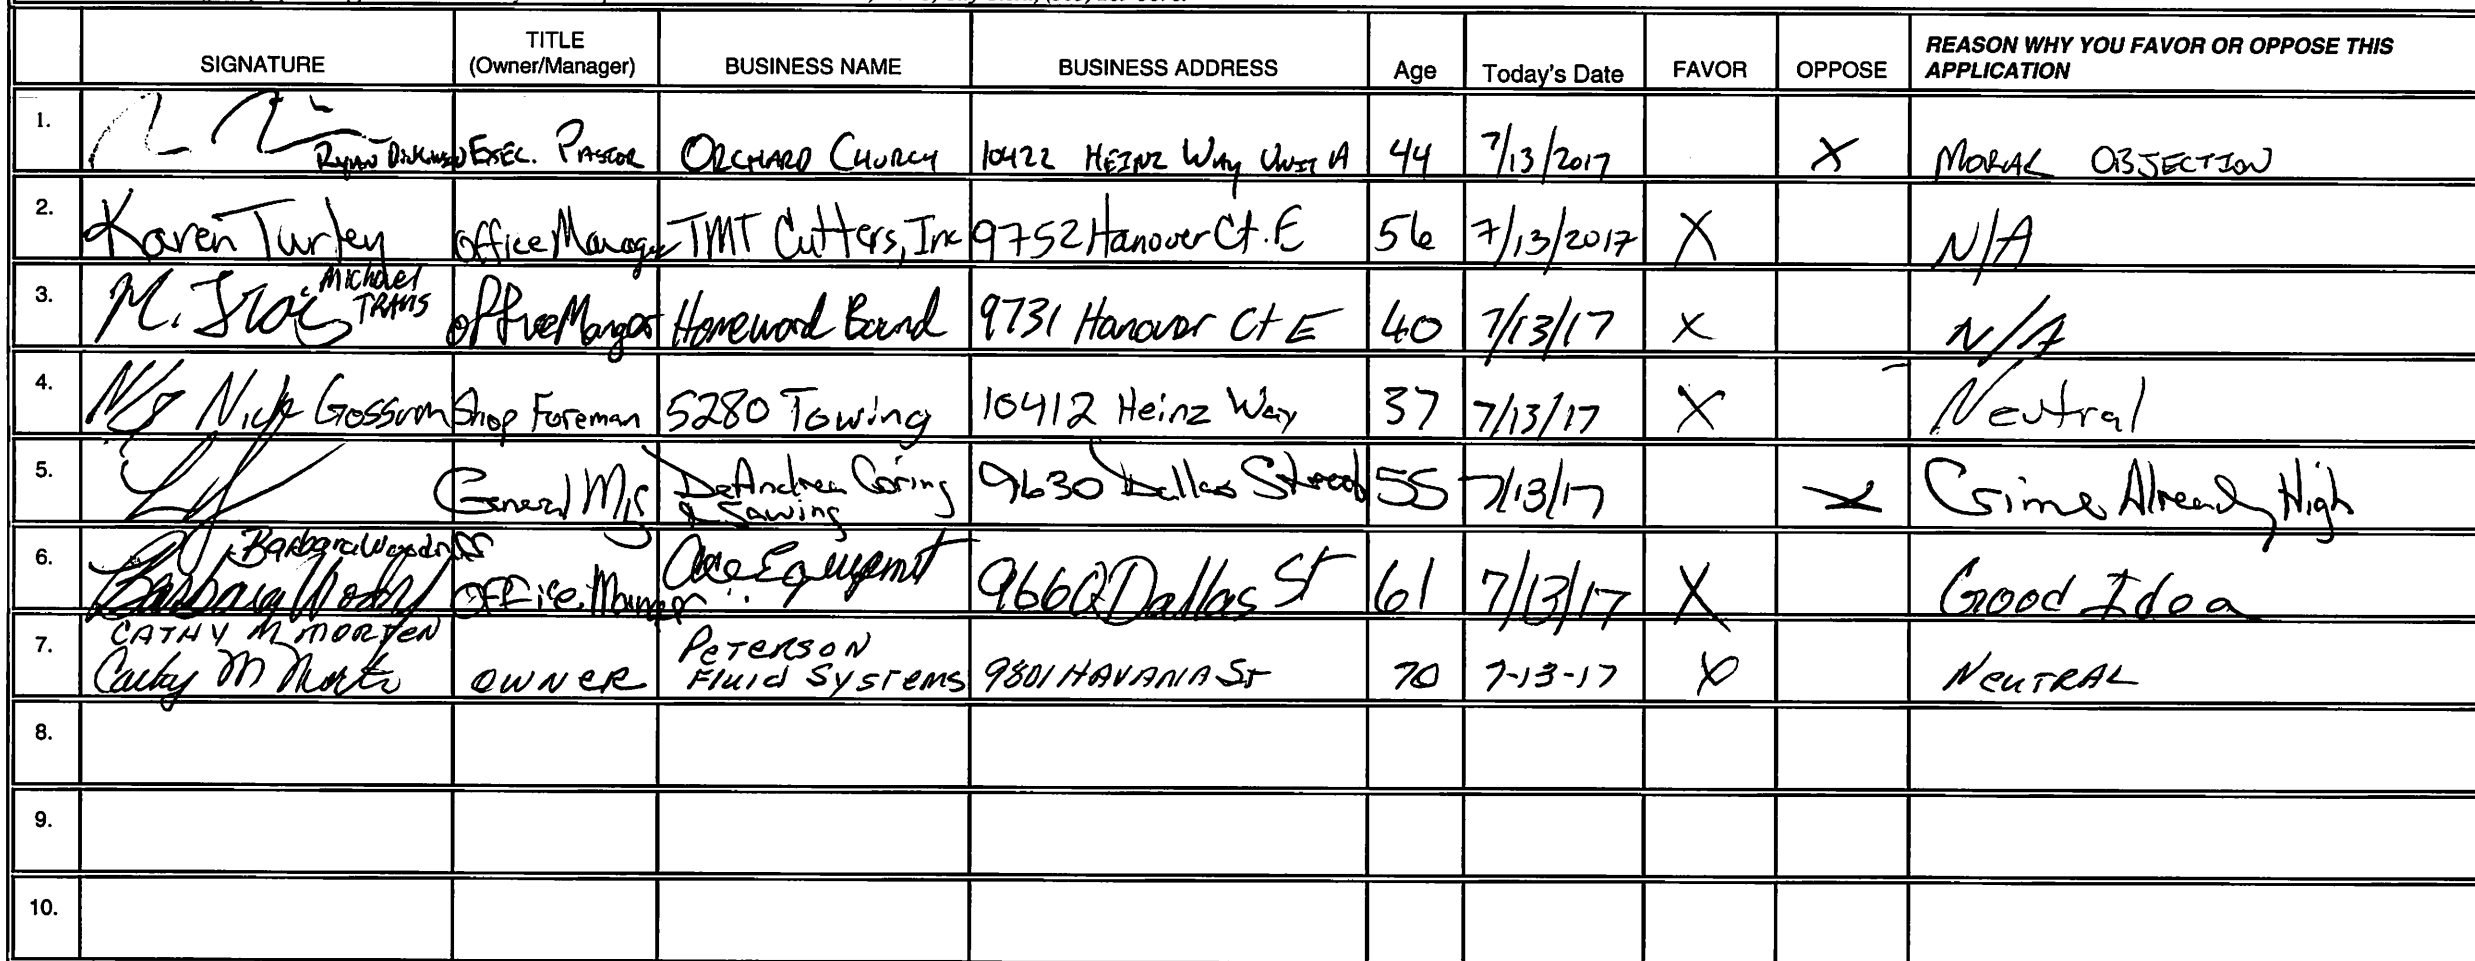 SIGNATURE TITLE (Owner/Manager) BUSINESS NAME BUSINESS ADDRESS Age Today's Date FAVOR OPPOSE REASON WHY YOU FAVOR OR OPPOSE THIS APPLICATION
1. Ryan EXEC. PASTOR ORCHARD CHURCH 10422 HEINZ WAY UNIT A 44 7/13/2017 X MORAL OBJECTION
2. Karen Turley office Manager TMT Cutters, Inc 9752 Hanover Ct. E 56 7/13/2017 X N/A
3. Michael office Manger Homeward Bound 9731 Hanover Ct E 40 7/13/17 X N/A
4. Nick Gossum Shop Foreman 5280 Towing 10412 Heinz Way 37 7/13/17 X Neutral
5. General Mg DeAndrea Coring & Sawing 9630 Dallas Street 55 7/13/17 X Crime Already High
6. Barbara Office Manager 9660 Dallas St 61 7/13/17 X Good Idea
7. CATHY M MORTEN Cathy M OWNER PETERSON Fluid SYSTEMS 9801 HAVANA St 70 7-13-17 X NEUTRAL
8.
9.
10.